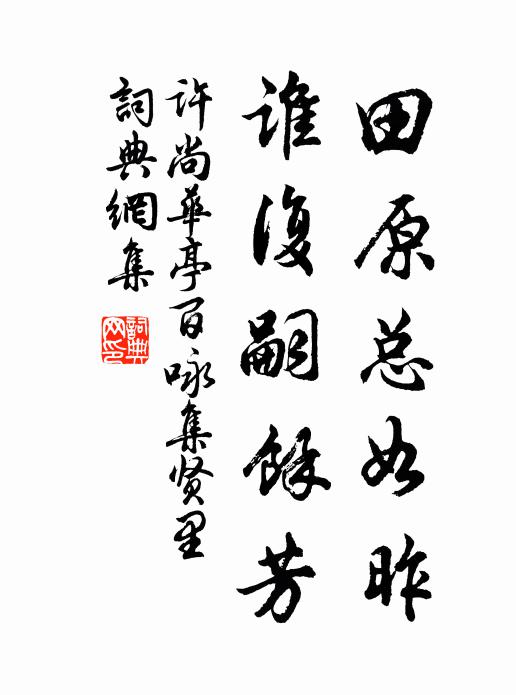 田原总如昨
谁復嗣餘芳
许尚華亭百咏集贤里
詞典網集
詞典網印